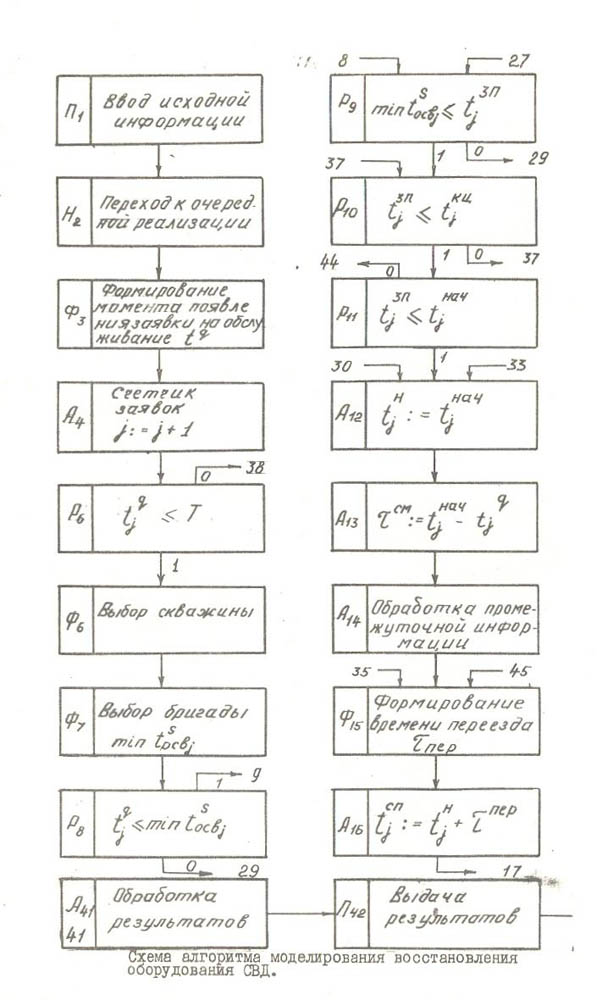 П1
Ввод исходной
информации
Н2
Переход к очеред-
ной реализации
Ф3
Формирование
момента появле
ния заявки на обслу-
живание t^q
А4
Счетчик
заявок
j := j + 1
0
38
Р6
t_j^q ≤ T
1
Ф6
Выбор скважины
Ф7
Выбор бригады
min t_освj^s
1
9
Р8
t_j^q ≤ min t_освj^s
0
29
А41
41
Обработка
результатов
8
27
Р9
min t_освj^s ≤ t_j^зп
1
0
29
37
Р10
t_j^зп ≤ t_j^кц
44
0
1
0
37
Р11
t_j^зп ≤ t_j^нач
30
1
33
А12
t_j^н := t_j^нач
А13
τ^см := t_j^нач - t_j^q
А14
Обработка проме-
жуточной инфор-
мации
35
45
Ф15
Формирование
времени переезда
τ_пер
А16
t_j^сп := t_j^н + τ^пер
17
П42
Выдача
результатов
Схема алгоритма моделирования восстановления
оборудования СВД.